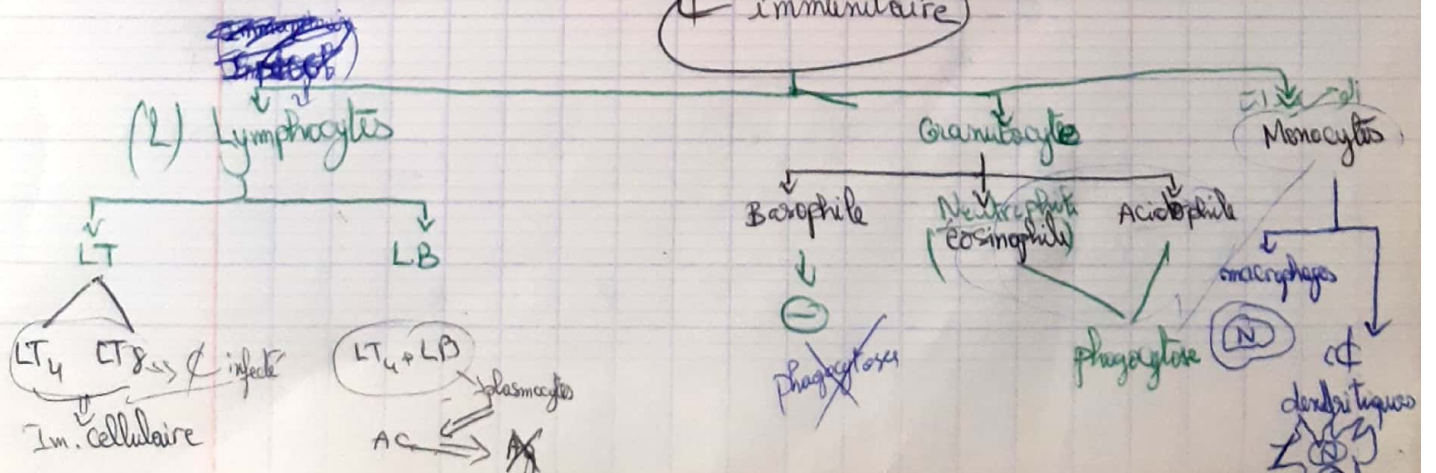 ¢ immunitaire
(2) Lymphocytes
Granulocytes
Monocytes
LT
LB
Basophile
Neutrophile
(éosinophile)
Acidophile
macrophages
LT4 LT8
¢ infecté
LT4 + LB
plasmocytes
Im. cellulaire
AC
phagocyter
phagocytose
N
¢
dendritiques
N